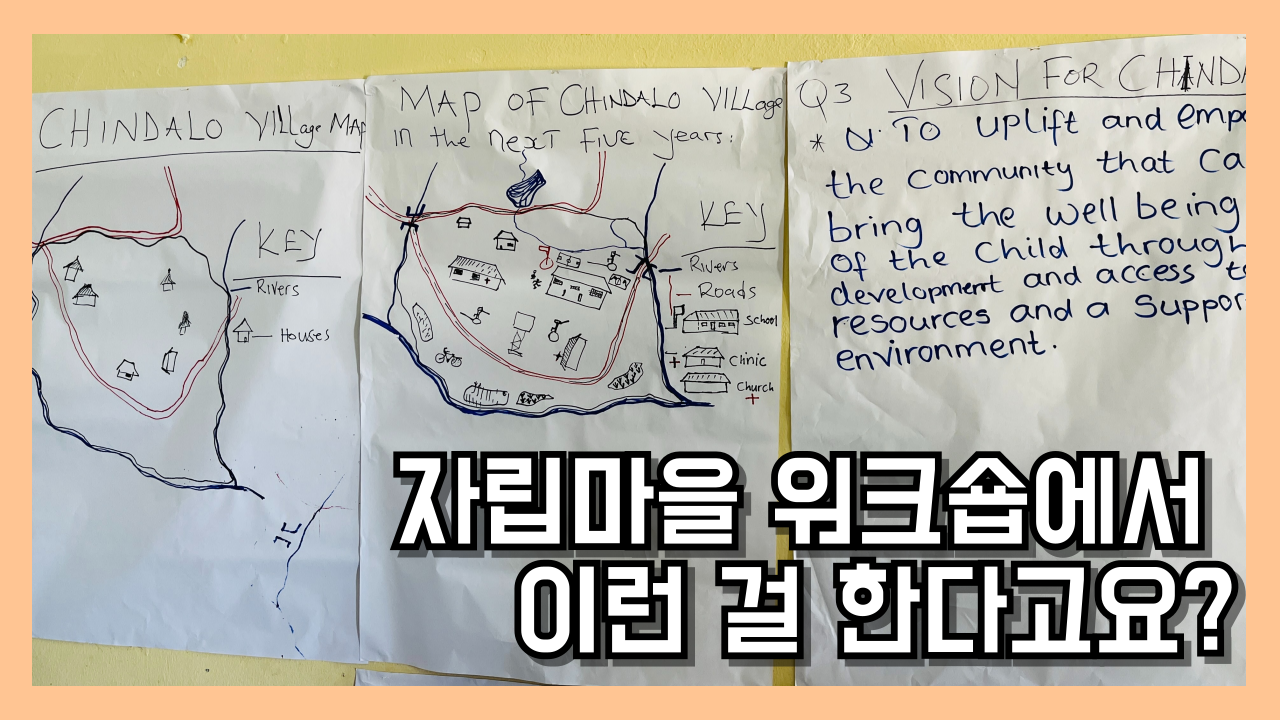 CHINDALO Village MAP
KEY
Rivers
Houses
MAP OF CHINDALO VILLage
in the next FIVE years:
KEY
Rivers
Roads
School
Clinic
Church
Q3 VISION FOR CHINDA
* TO uplift and empo
the community that Ca
bring the well being
of the Child through
development and access to
resources and a Suppor
environment.
자립마을 워크숍에서
이런 걸 한다고요?